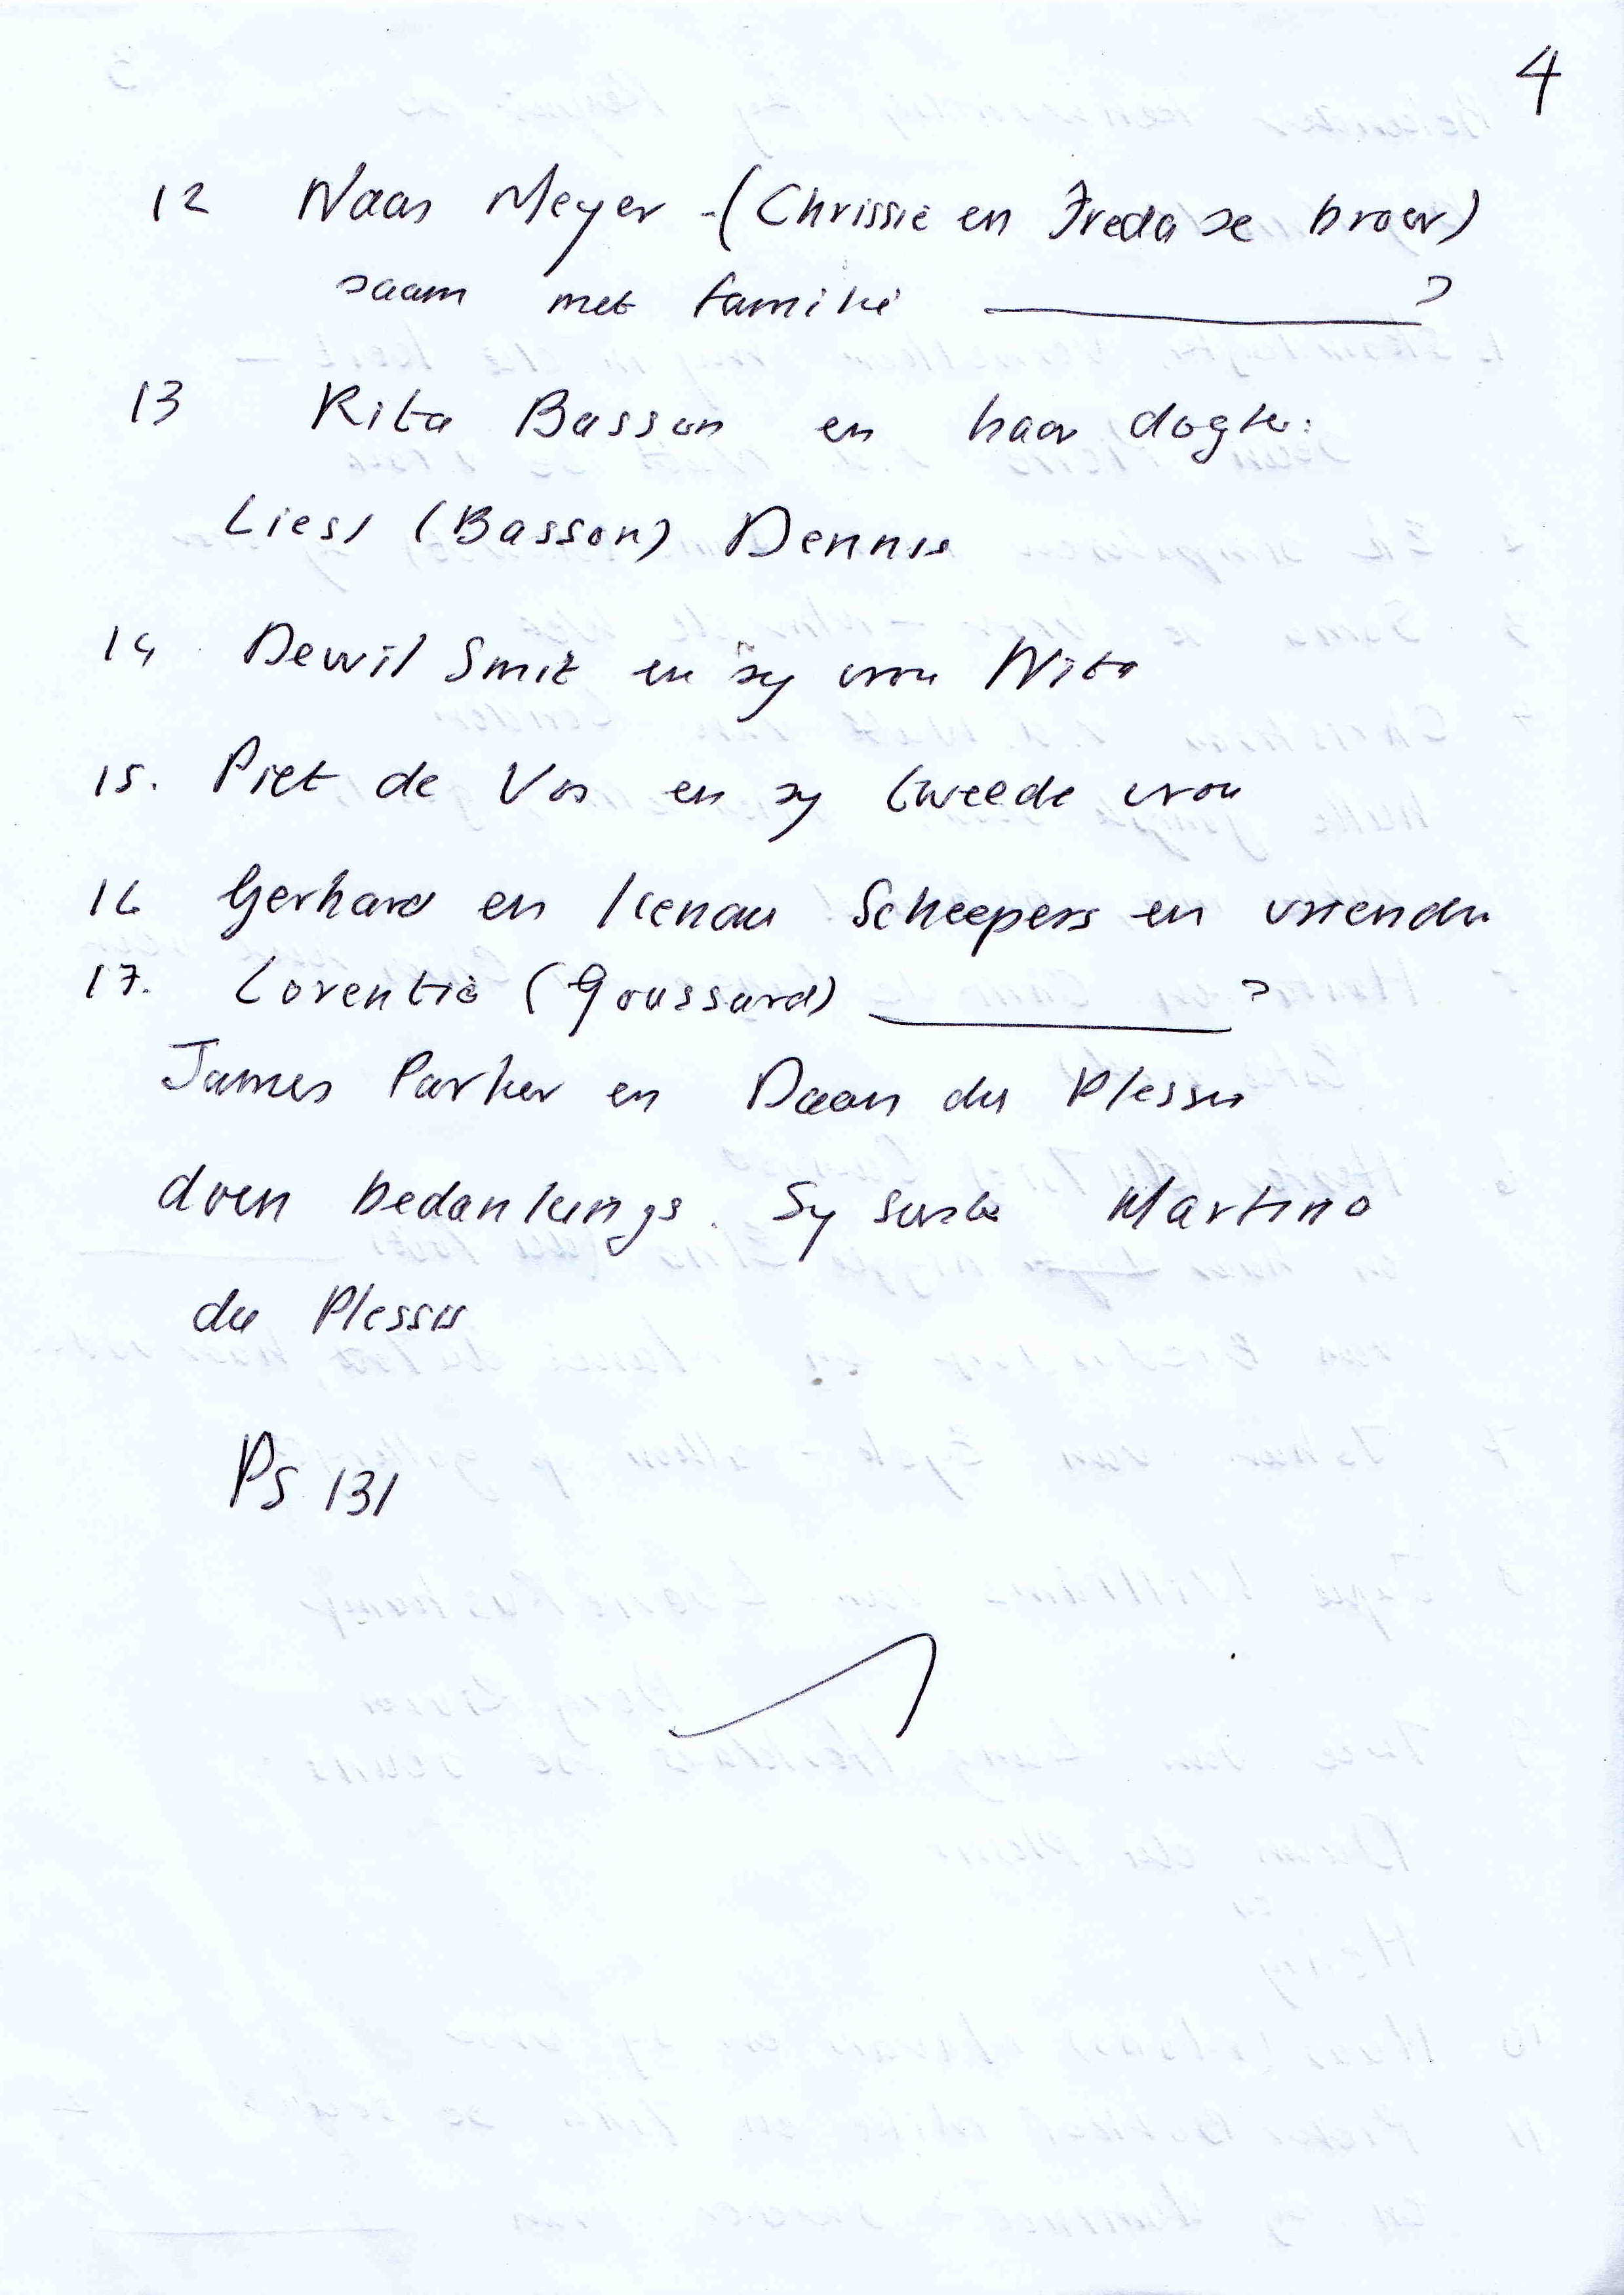 4
12 Naas Meyer - (Chrissie en Freda se broer)
saam met familie ?
13 Rita Basson en haar dogter:
Liesl (Basson) Dennis
14 Dewil Smit en sy vrou Nita
15. Piet de Vos en sy tweede vrou
16 Gerhard en Scheepers en vriende
17. Lorentia (Goussard) ?
James Parker en Daan du Plessis
doen bedankings. Sy suster Martina
du Plessis
Ps 131